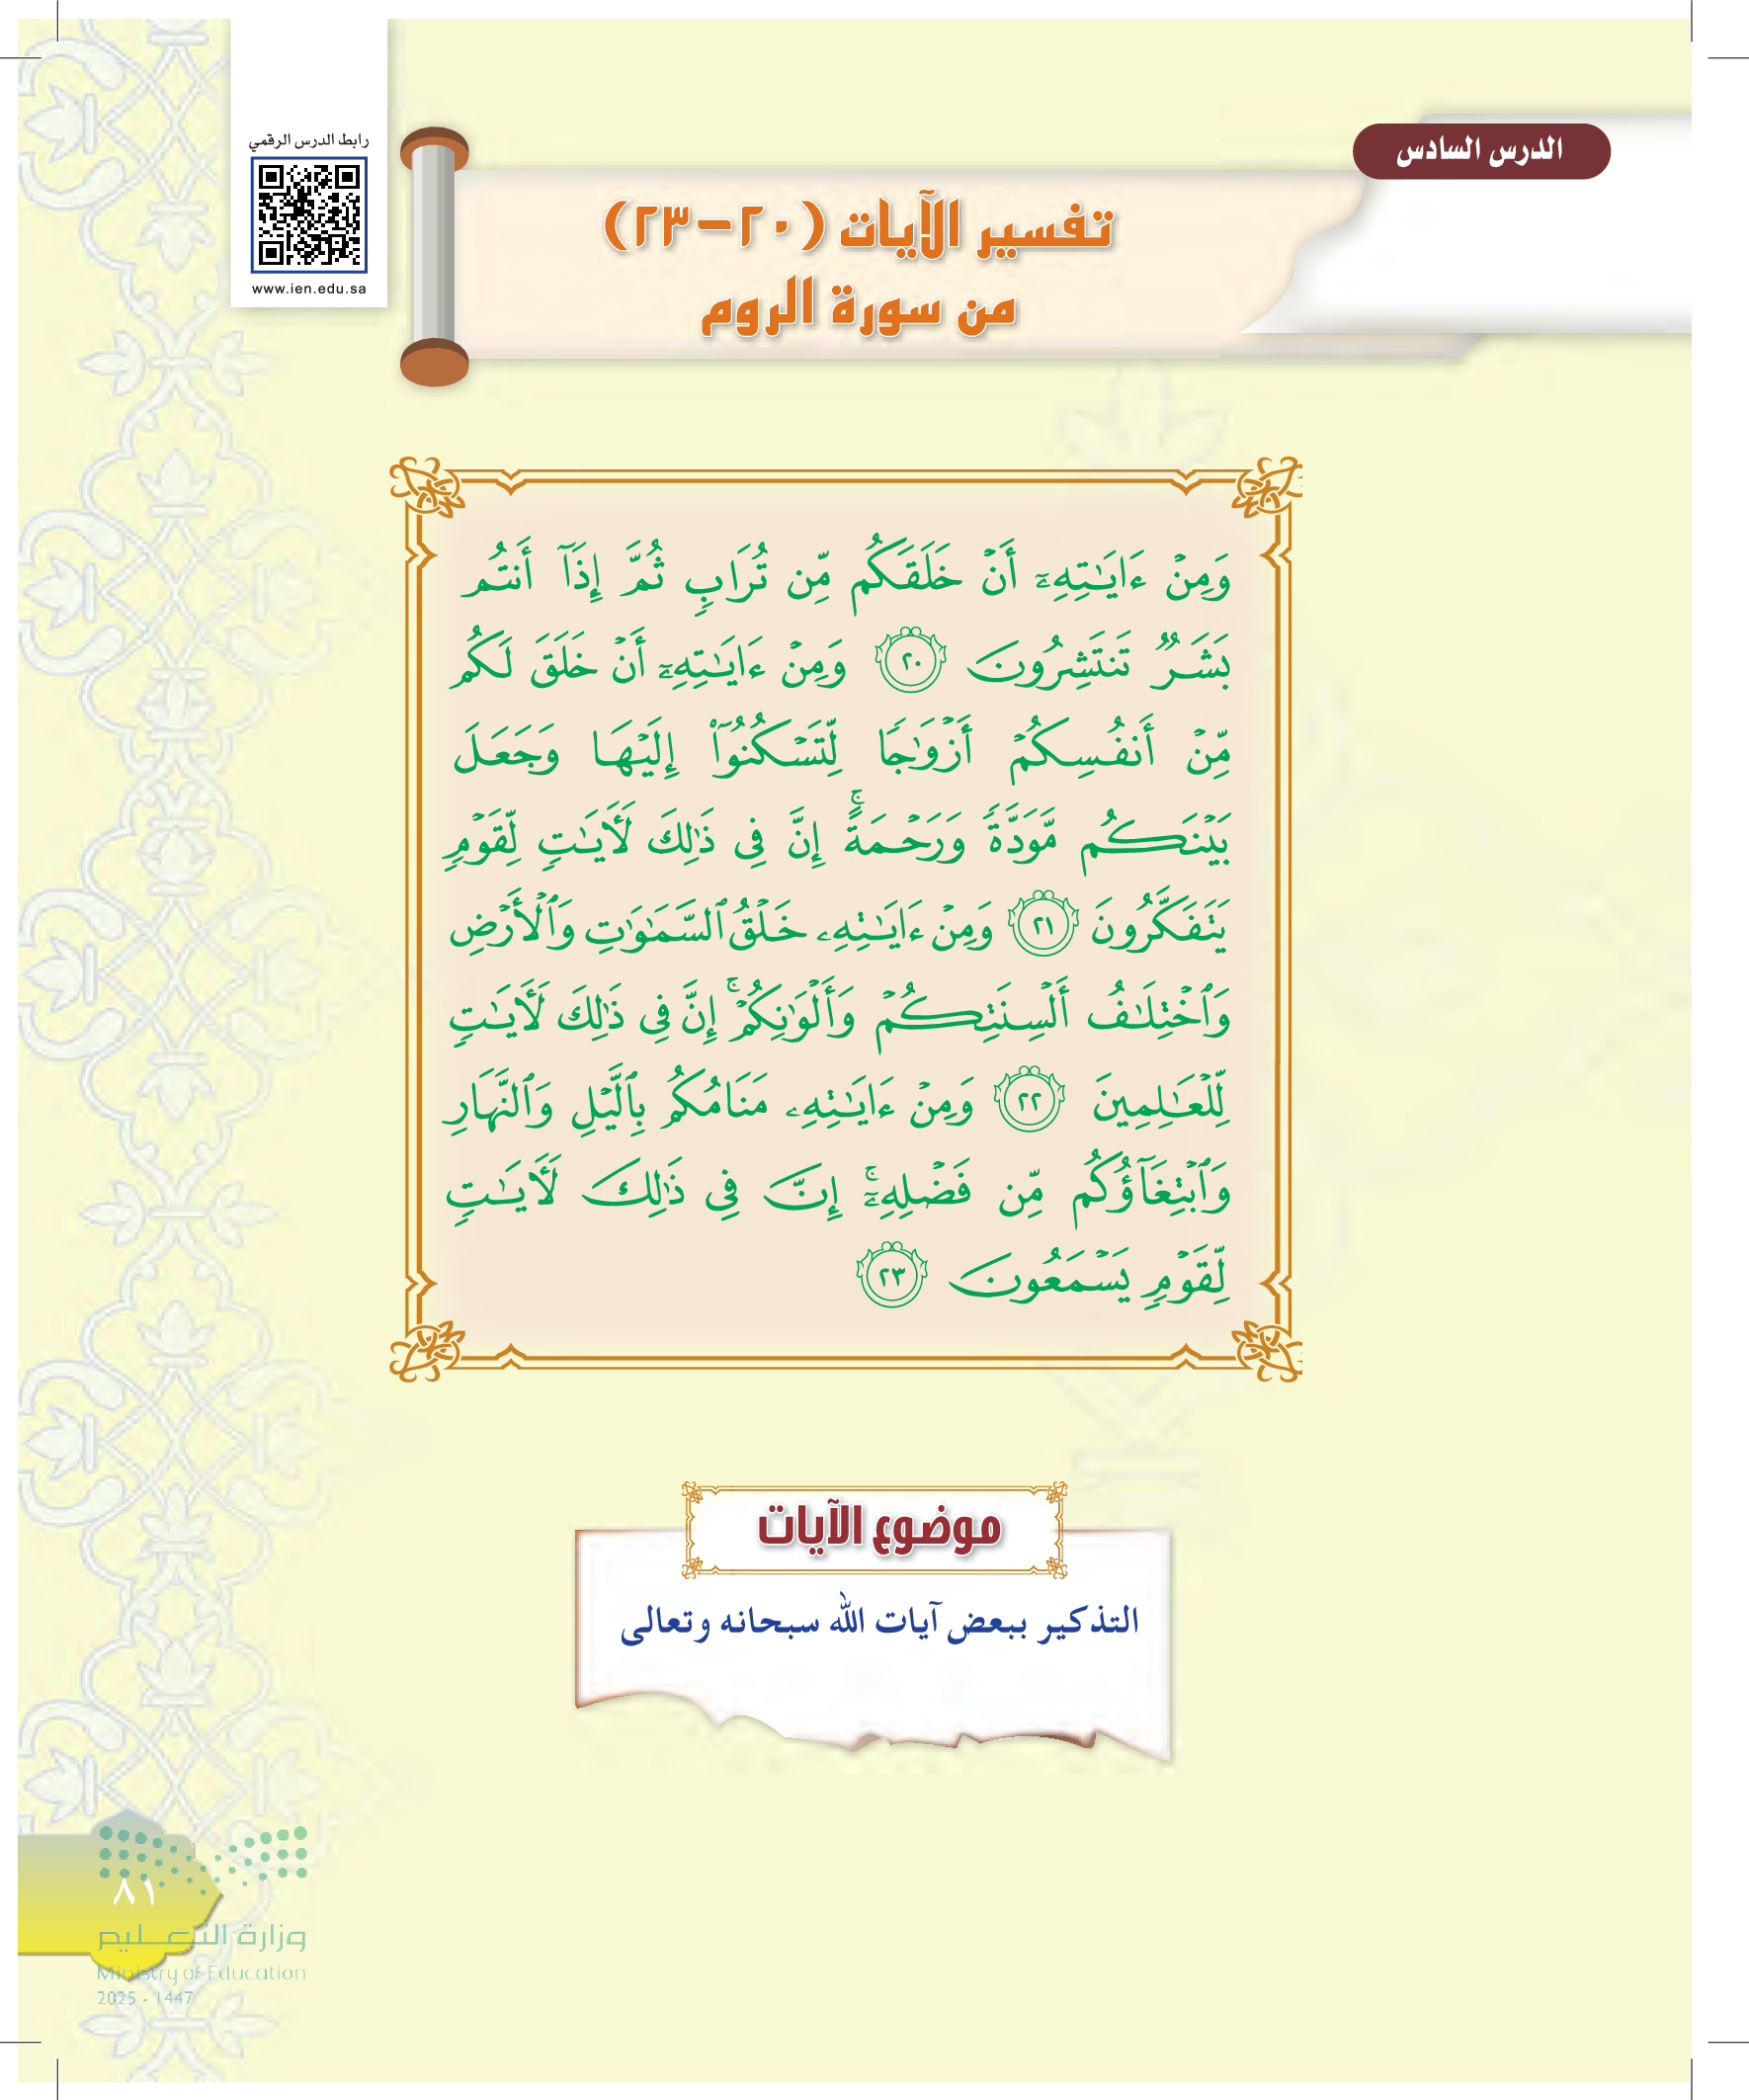 الدرس السادس
رابط الدرس الرقمي
www.ien.edu.sa
تفسير الآيات (٢٠-٢٣)
من سورة الروم
وَمِنْ ءَايَٰتِهِۦٓ أَنْ خَلَقَكُم مِّن تُرَابٍ ثُمَّ إِذَآ أَنتُم
بَشَرٌ تَنتَشِرُونَ ٢٠ وَمِنْ ءَايَٰتِهِۦٓ أَنْ خَلَقَ لَكُم
مِّنْ أَنفُسِكُمْ أَزْوَٰجًا لِّتَسْكُنُوٓا۟ إِلَيْهَا وَجَعَلَ
بَيْنَكُم مَّوَدَّةً وَرَحْمَةً ۚ إِنَّ فِى ذَٰلِكَ لَـَٔايَٰتٍ لِّقَوْمٍ
يَتَفَكَّرُونَ ٢١ وَمِنْ ءَايَٰتِهِۦ خَلْقُ ٱلسَّمَٰوَٰتِ وَٱلْأَرْضِ
وَٱخْتِلَٰفُ أَلْسِنَتِكُمْ وَأَلْوَٰنِكُمْ ۚ إِنَّ فِى ذَٰلِكَ لَـَٔايَٰتٍ
لِّلْعَٰلِمِينَ ٢٢ وَمِنْ ءَايَٰتِهِۦ مَنَامُكُم بِٱلَّيْلِ وَٱلنَّهَارِ
وَٱبْتِغَآؤُكُم مِّن فَضْلِهِۦٓ ۚ إِنَّ فِى ذَٰلِكَ لَـَٔايَٰتٍ
لِّقَوْمٍ يَسْمَعُونَ ٢٣
موضوع الآيات
التذكير ببعض آيات الله سبحانه وتعالى
٨١
وزارة التعليم
Ministry of Education
2025 - 1447